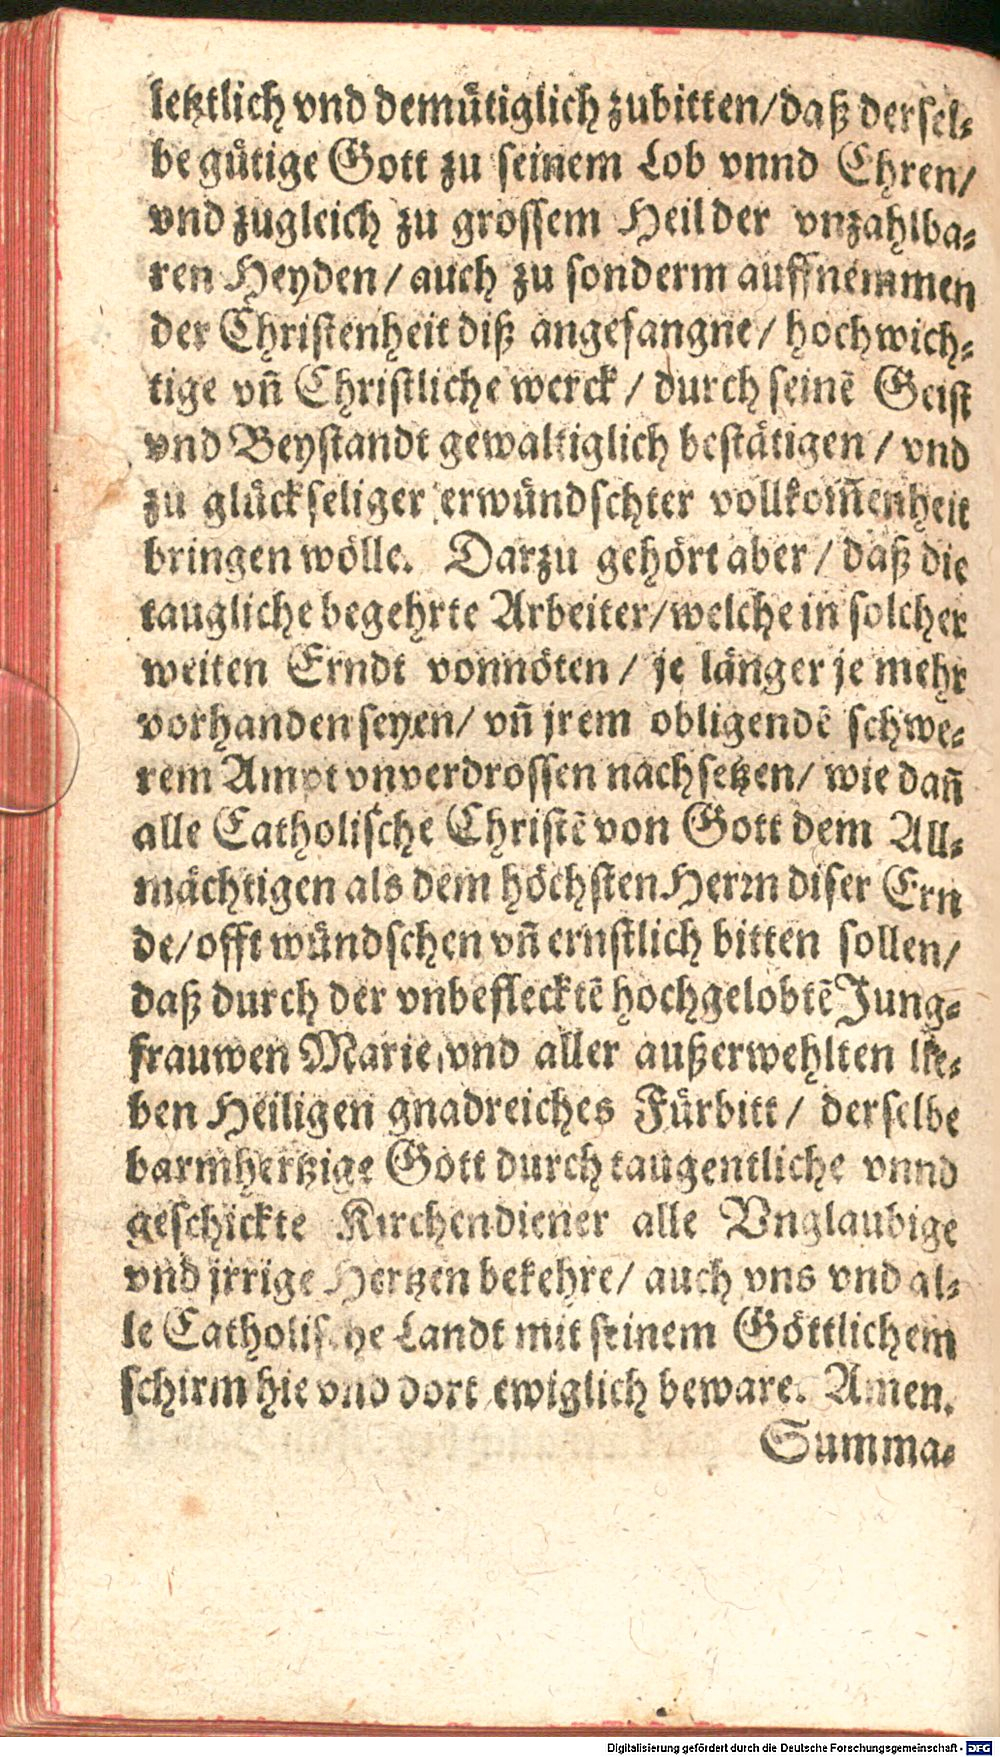 letztlich vnd demütiglich zubitten/daß dersel-
be gütige Gott zu seinem Lob vnnd Ehren/
vnd zugleich zu grossem Heil der vnzahlba-
ren Heyden/auch zu sonderm auffnemmen
der Christenheit diß angefangne/hochwich-
tige vñ Christliche werck/durch seinē Geist
vnd Beystandt gewaltiglich bestätigen/vnd
zu glückseliger erwündschter vollkom̃enheit
bringen wölle. Darzu gehört aber/daß die
taugliche begehrte Arbeiter/welche in solcher
weiten Erndt vonnöten/je länger je mehr
vorhanden seyen/vñ jrem obligendē schwe-
rem Ampt vnverdrossen nachsetzen/wie dañ
alle Catholische Christē von Gott dem All-
mächtigen als dem höchsten Herrn diser Ern
de/offt wündschen vñ ernstlich bitten sollen/
daß durch der vnbeflecktē hochgelobtē Jung-
frauwen Marie, vnd aller außerwehlten lie-
ben Heiligen gnadreiches Fürbitt/derselbe
barmhertzige Gott durch taugentliche vnnd
geschickte Kirchendiener alle Vnglaubige
vnd jrrige Hertzen bekehre/auch vns vnd al-
le Catholische Landt mit seinem Göttlichem
schirm hie vnd dort ewiglich beware. Amen.
Summa-
Digitalisierung gefördert durch die Deutsche Forschungsgemeinschaft - DFG